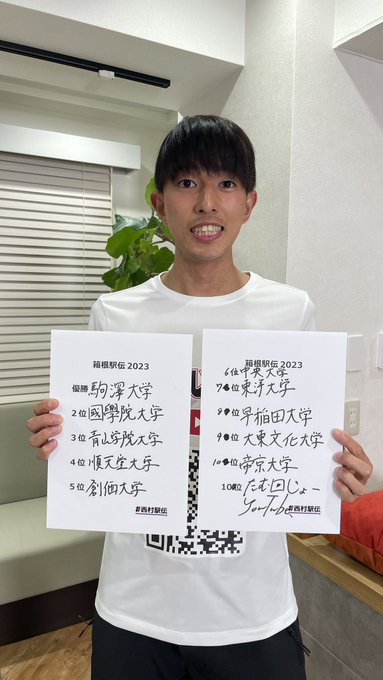 箱根駅伝 2023
優勝 駒澤大学
2位 國學院大学
3位 青山学院大学
4位 順天堂大学
5位 創価大学
#西村駅伝
箱根駅伝 2023
6位 中央大学
7位 東洋大学
8位 早稲田大学
9位 大東文化大学
10位 帝京大学
10位 たむじょー
YouTube
#西村駅伝